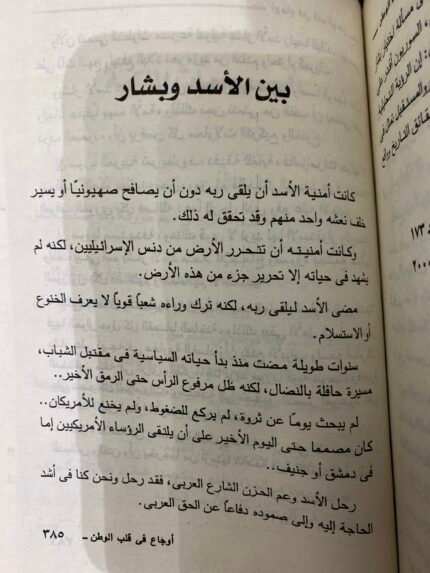 بين الأسد وبشار
كانت أمنية الأسد أن يلقى ربه دون أن يصافح صهيونيًا أو يسير
خلف نعشه واحد منهم وقد تحقق له ذلك.
وكانت أمنيته أن تتحرر الأرض من دنس الإسرائيليين، لكنه لم
يشهد فى حياته إلا تحرير جزء من هذه الأرض.
مضى الأسد ليلقى ربه، لكنه ترك وراءه شعبًا قويًا لا يعرف الخنوع
أو الاستسلام.
سنوات طويلة مضت منذ بدأ حياته السياسية فى مقتبل الشباب،
مسيرة حافلة بالنضال، لكنه ظل مرفوع الرأس حتى الرمق الأخير..
لم يبحث يومًا عن ثروة، لم يركع للضغوط، ولم يخنع للأمريكان..
كان مصمما حتى اليوم الأخير على أن يلتقى الرؤساء الأمريكيين إما
فى دمشق أو جنيف..
رحل الأسد وعم الحزن الشارع العربى، فقد رحل ونحن كنا فى أشد
الحاجة إليه وإلى صموده دفاعًا عن الحق العربى.
أوجاع فى قلب الوطن - ٣٨٥